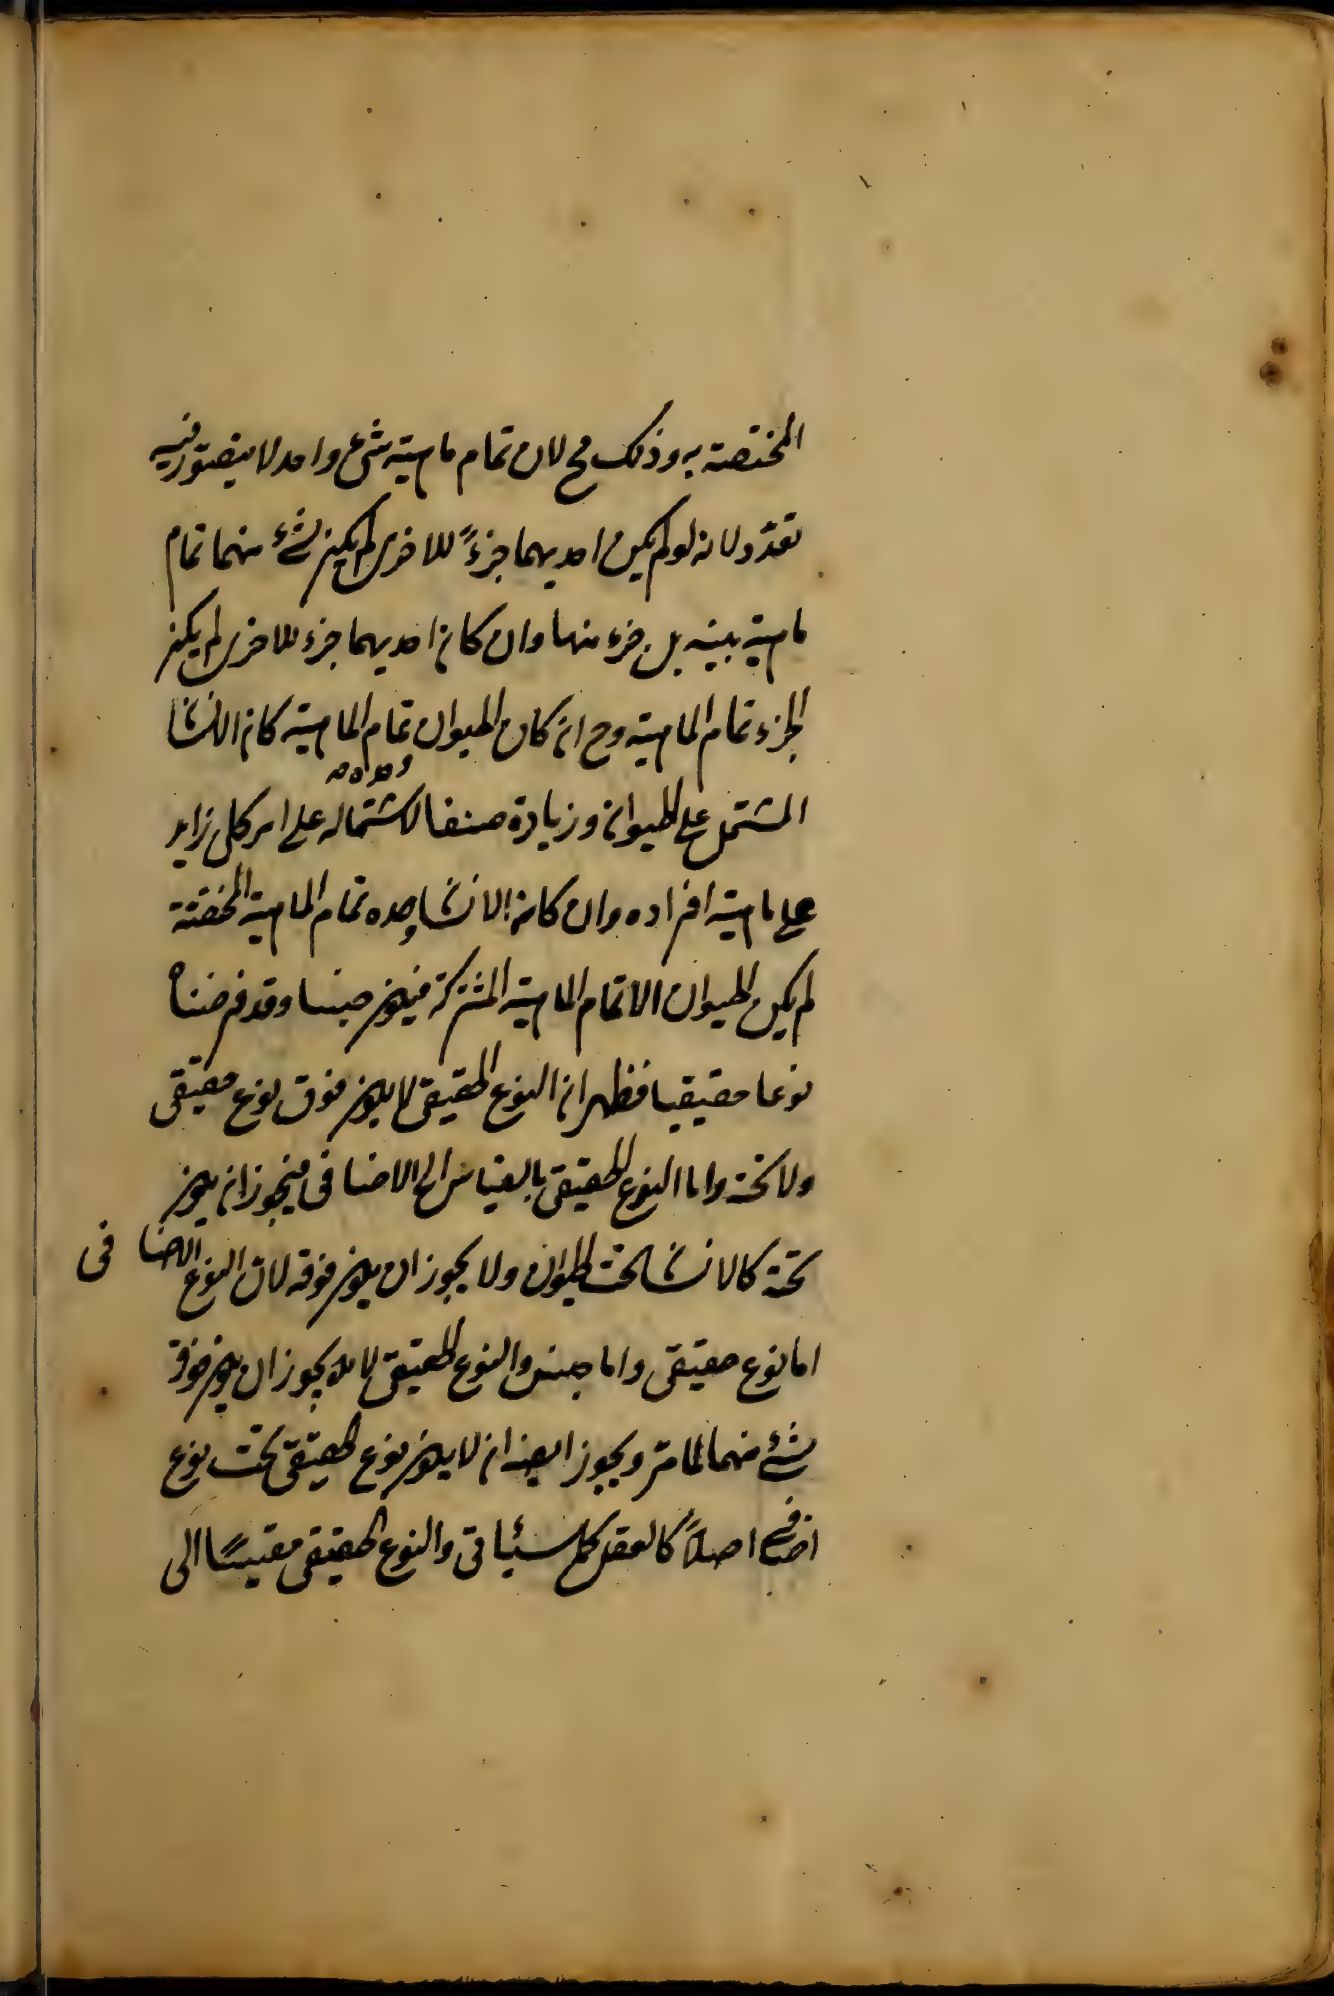 المختصة به وذلك مح لان تمام ماهية شئ واحد لا يتصور فيه
تعدد ولانه لو لم يكن احديهما جزءً للاخرى لم يكن شئ منهما تمام
ماهية بل جزء منها وان كان احديهما جزء للاخرى لم يكن
الجزء تمام الماهية وح ان كان الحيوان تمام الماهية كان الانسان
المشتمل على الحيوان وزيادة صنفا لاشتماله على امر كلى زايد
على ماهية افراده وان كان الانسان وحده تمام الماهية المختصة
لم يكن الحيوان الا تمام الماهية المشتركة فيكون جنسا وقد فرضناه
نوعا حقيقيا فظهر ان النوع الحقيقى لا يكون فوق نوع حقيقى
ولا تحته واما النوع الحقيقى بالقياس الى الاضافى فيجوز ان يكون
تحته كالانسان تحت الحيوان ولا يجوز ان يكون فوقه لان النوع الاضافى
اما نوع حقيقى واما جنس والنوع الحقيقى لا يجوز ان يكون فوق
شئ منهما لما مر ويجوز ايضا ان لا يكون نوع حقيقى تحت نوع
اضافى اصلاً كالعقل والنوع الحقيقى مقيسًا الى